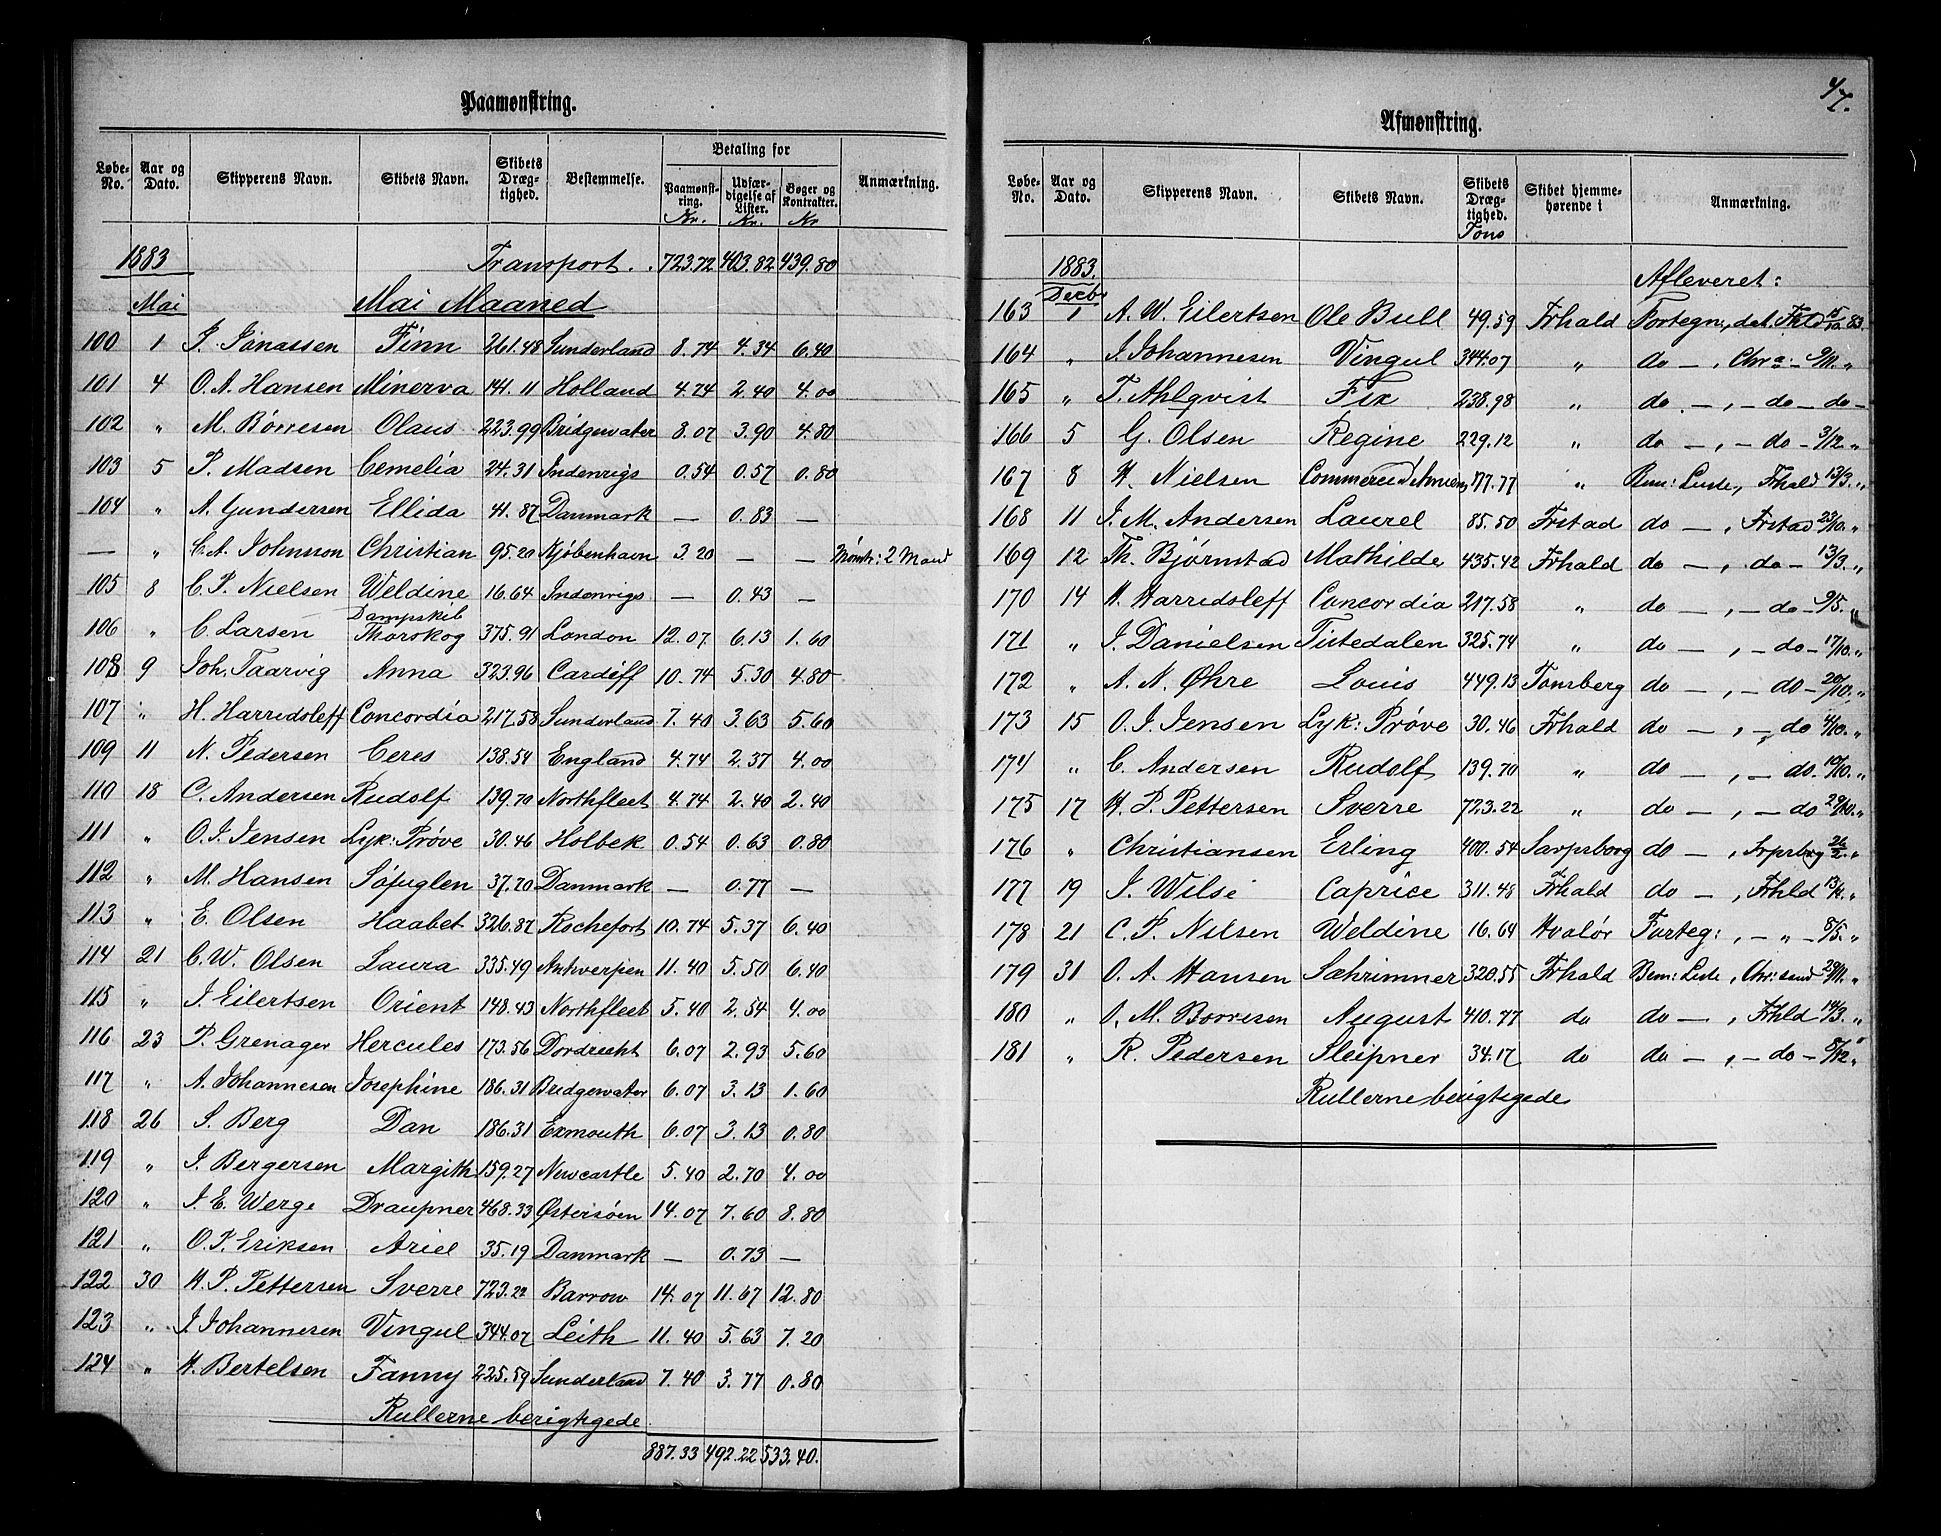 Paamønstring.
Løbe-No. | Aar og Dato. | Skipperens Navn. | Skibets Navn. | Skibets Dræg-tighed. | Bestemmelse. | Betaling for | Anmærkning.
Paamønst-ring. | Udfær-digelse af Lister. | Bøger og Kontrakter.
Kr. | Kr. | Kr
1883 Transport . . 723.72 403.82 439.80
Mai Mai Maaned
100 1 J. Jonassen Finn 261.48 Sunderland 8.74 4.34 6.40
101 4 O. A. Hansen Minerva 141.11 Holland 4.74 2.40 4.00
102 " M. Børresen Olaus 223.99 Bridgewater 8.07 3.90 4.80
103 5 P. Madsen Cemelia 24.31 Indenrigs 0.54 0.57 0.80
104 " A. Gundersen Ellida 41.87 Danmark — 0.83 —
— " C. A. Johnsson Christian 95.20 Kjøbenhavn 3.20 — — Mønstr: 2 Mand
105 8 C. P. Nielsen Weldine 16.64 Indenrigs — 0.43 —
106 " C. Larsen Dampskib Thorskog 375.91 London 12.07 6.13 1.60
108 9 Joh. Taarvig Anna 323.96 Cardiff 10.74 5.30 4.80
107 " H. Harridsleff Concordia 217.58 Sunderland 7.40 3.63 5.60
109 11 N. Pedersen Ceres 138.54 England 4.74 2.37 4.00
110 18 C. Andersen Rudolf 139.70 Northfleet 4.74 2.40 2.40
111 " O. J. Jensen Lyk: Prøve 30.46 Holbek 0.54 0.63 0.80
112 " M. Hansen Søfuglen 37.70 Danmark — 0.77 —
113 " E. Olsen Haabet 326.87 Rochefort 10.74 5.37 6.40
114 21 C. W. Olsen Laura 335.49 Antverpen 11.40 5.50 6.40
115 " J. Eilertsen Orient 148.43 Northfleet 5.40 2.54 4.00
116 23 P. Grenager Hercules 173.56 Dordrecht 6.07 2.93 5.60
117 " A. Johannesen Josephine 186.31 Bridgewater 6.07 3.13 1.60
118 26 S. Berg Dan 186.31 Exmouth 6.07 3.13 0.80
119 " J. Bergersen Margith 159.27 Newcastle 5.40 2.70 4.00
120 " J. E. Werge Draupner 468.33 Østersøen 14.07 7.60 8.80
121 " O. P. Eriksen Ariel 35.19 Danmark — 0.73 —
122 30 H. P. Pettersen Sverre 723.22 Barrow 14.07 11.67 12.80
123 " J. Johannesen Vingul 344.07 Leith 11.40 5.63 7.20
124 " H. Bertelsen Fanny 225.59 Sunderland 7.40 3.77 0.80
Rullerne berigtigede
887.33 492.22 533.40.
47.
Afmønstring.
Løbe-No. | Aar og Dato. | Skipperens Navn. | Skibets Navn. | Skibets Dræg-tighed. | Skibet hjemme-hørende i | Anmærkning.
Tons
1883. Afleveret:
Decbr
163 1 A. W. Eilertsen Ole Bull 49.59 Frhald Fortegn, det. Fhld 15/10 83.
164 " J. Johannesen Vingul 344.07 " do — , Chra: — 9/11. "
165 " T. Ahlqvist Fix 238.98 " do — , — do — do —
166 5 G. Olsen Regine 229.12 " do — , — do — 3/12 "
167 8 H. Nielsen Commerce d'Amiens 177.77 " Bem: Liste, Fhald 13/3. "
168 11 J. M. Andersen Laurel 85.50 Frstad do — , Frstad 23/10. "
169 12 Th. Bjørnstad Mathilde 435.42 Frhald do — , do — 13/3. "
170 14 H. Harridsleff Concordia 217.58 " do — , — do — 9/5. "
171 " J. Danielsen Tistedalen 325.74 " do — , — do — 17/10. "
172 " A. N. Øhre Louis 449.13 Tønsberg do — , — do — 20/10. "
173 15 O. J. Jensen Lyk: Prøve 30.46 Frhald do — , — do 4/10. "
174 " C. Andersen Rudolf 139.70 " do — , — do. 10/10. "
175 17 H. P. Pettersen Sverre 723.22 " do — , — do 29/10. "
176 " Christiansen Erling 400.54 Sarpsborg do — , Srpsbrg 26/2. "
177 19 J. Wilse Caprice 311.48 Frhald do — , Frhld 13/4. "
178 21 C. P. Nilsen Weldine 16.64 Hvalør Forteg: , — " — 8/5. "
179 31 O. A. Hansen Sæhrimner 320.55 Frhald Bem: Liste , Chr:sand 29/11. "
180 " O. M. Borresen August 410.77 do do — , Frhld 14/3. "
181 " R. Pedersen Sleipner 34.17 do do — , — do — 8/12 "
Rullerne berigtigede